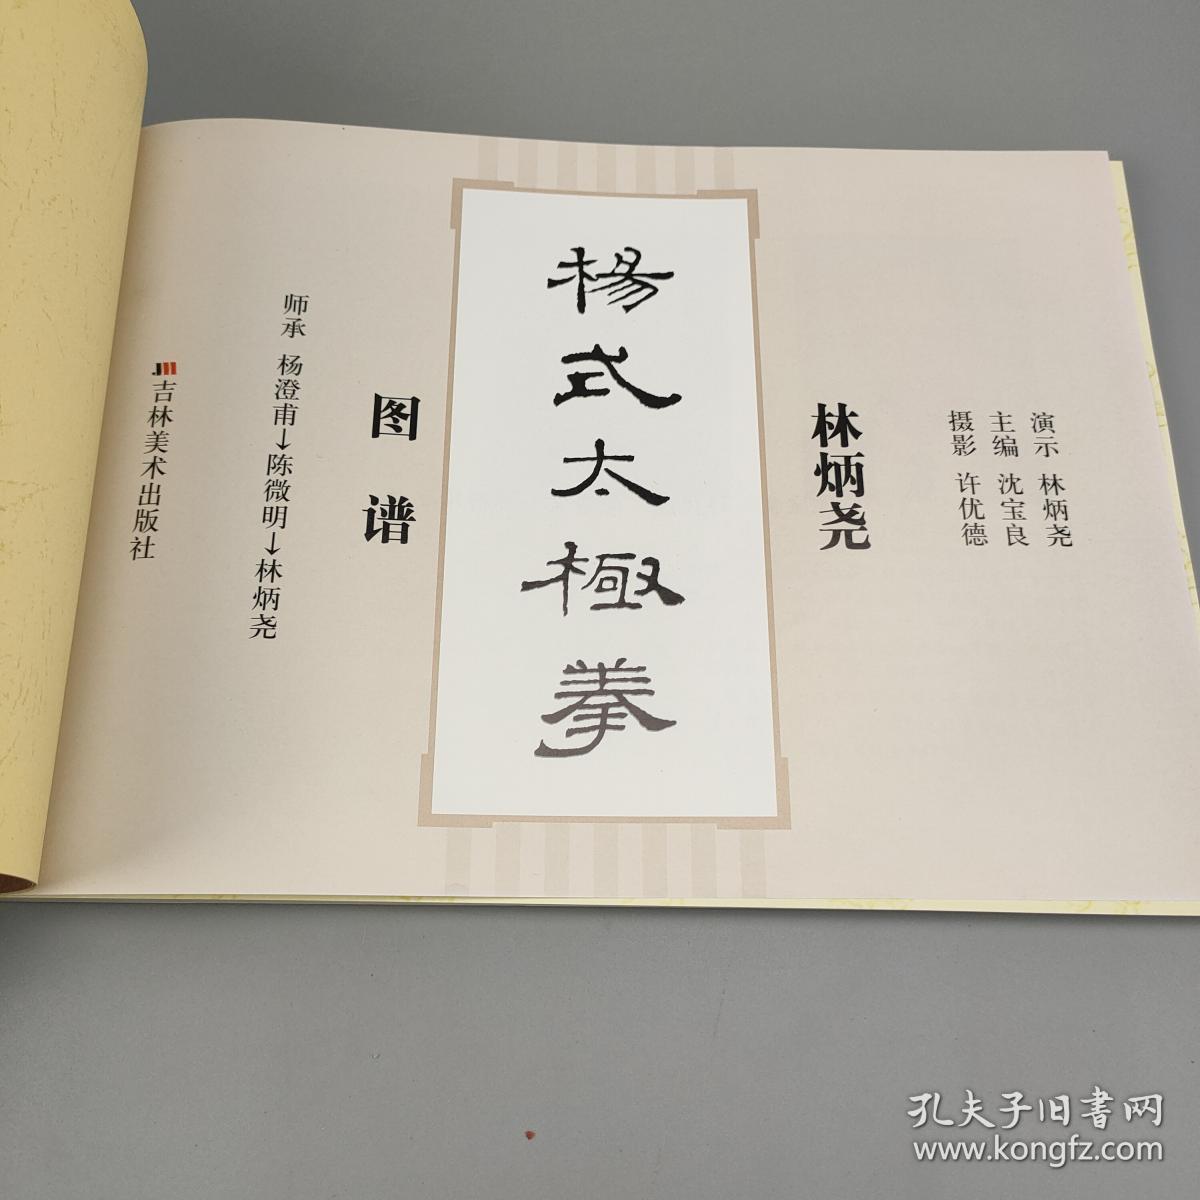 演示 林炳尧
主编 沈宝良
摄影 许优德
林炳尧
楊式太極拳
图谱
师承 杨澄甫→陈微明→林炳尧
吉林美术出版社
孔夫子旧书网
www.kongfz.com